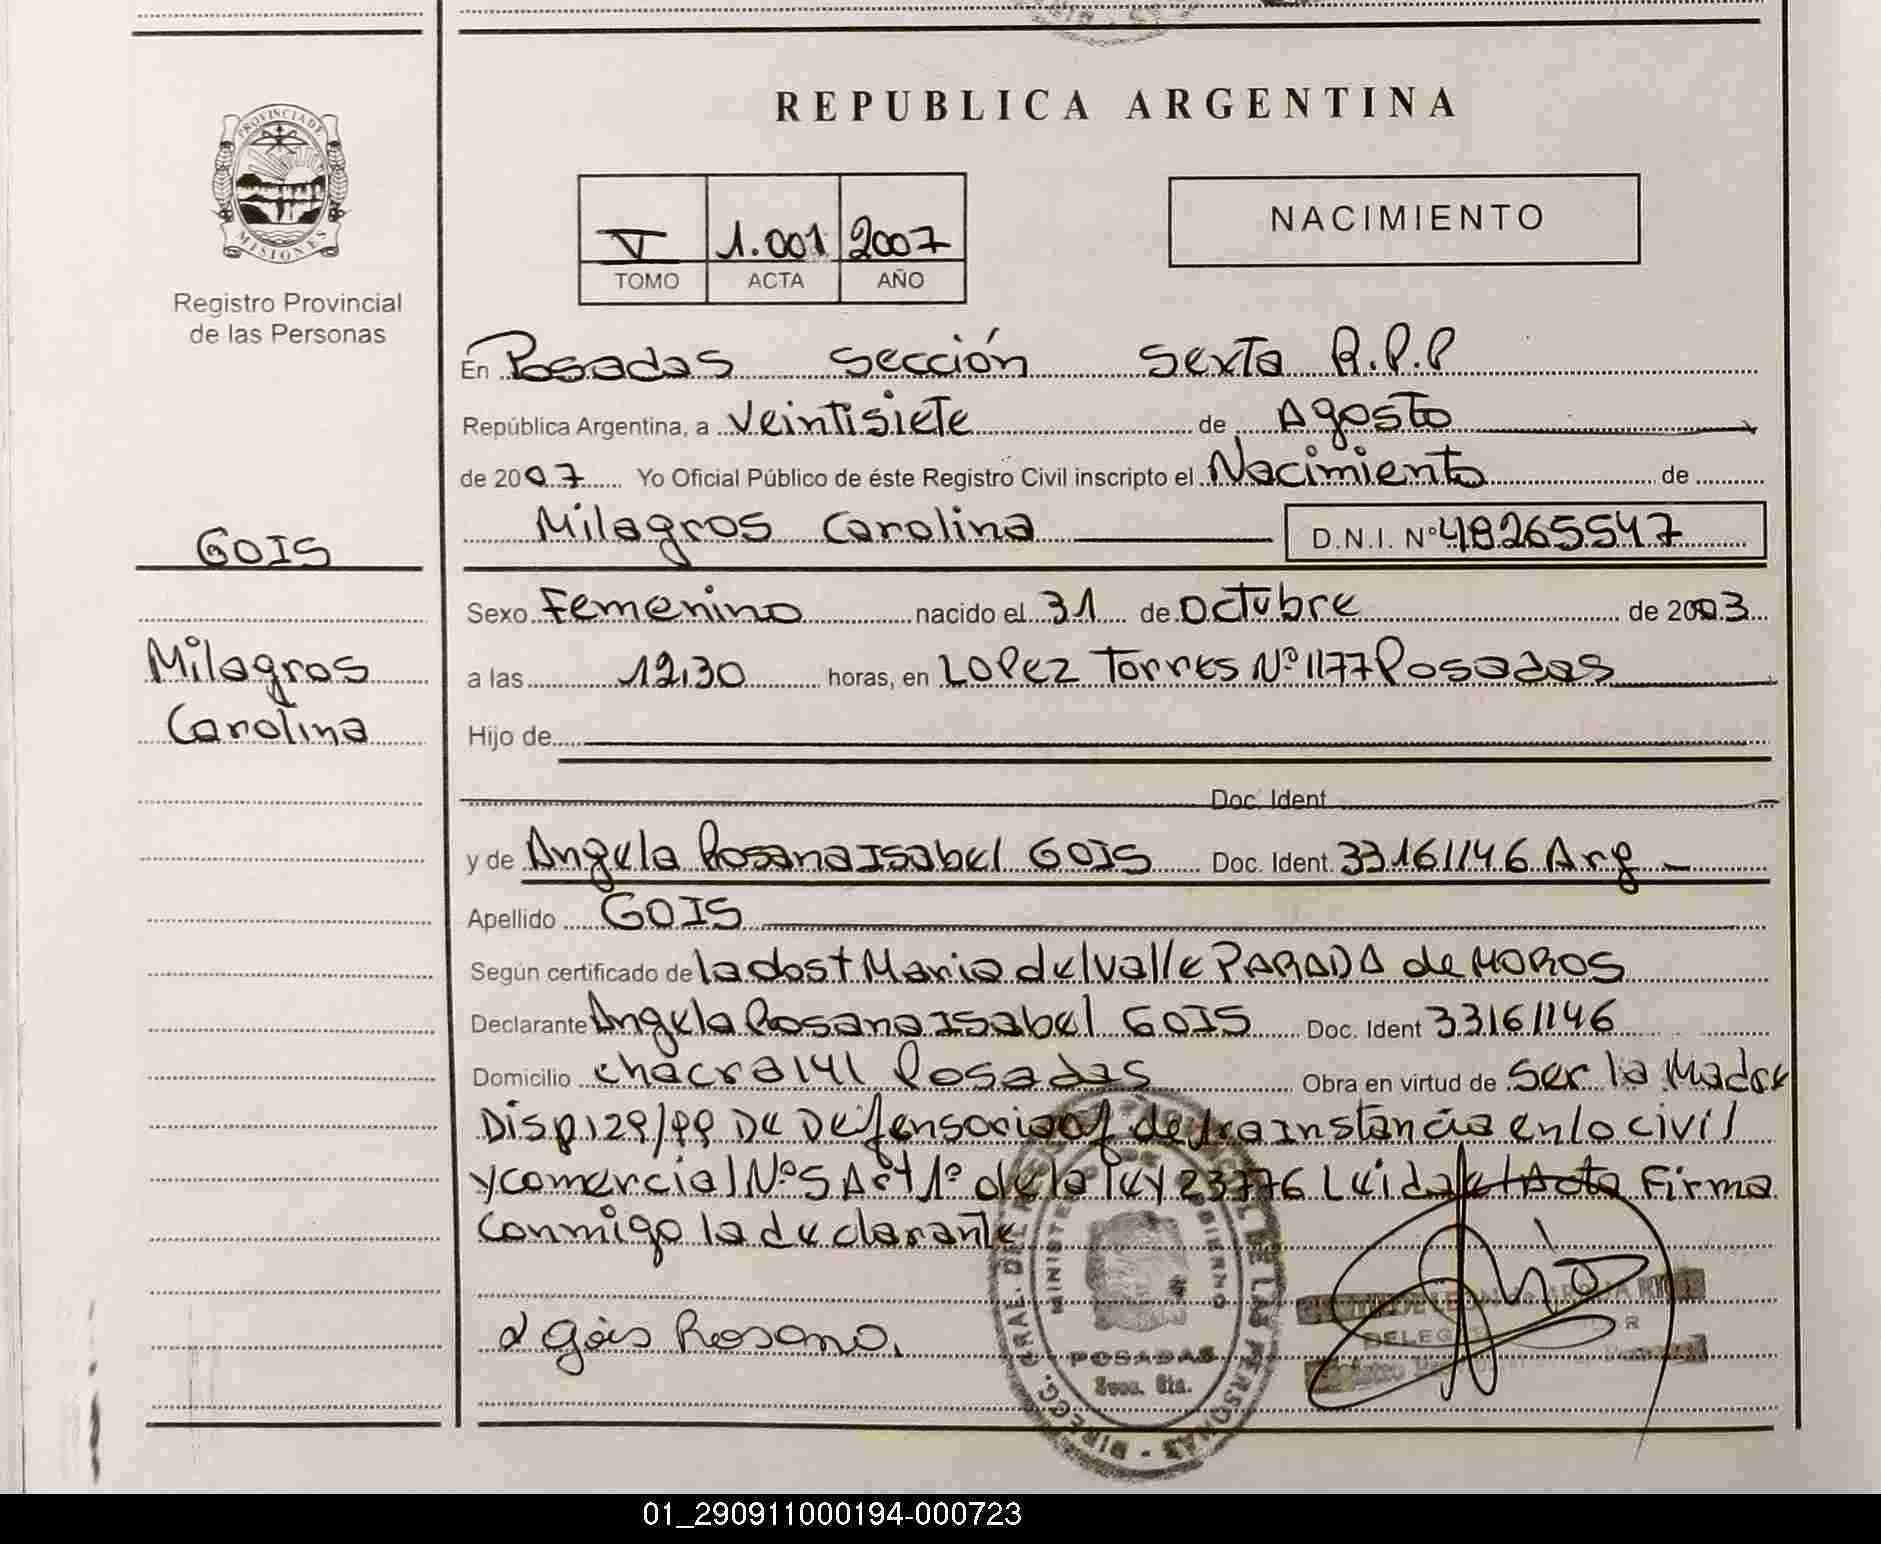 REPUBLICA ARGENTINA
PROVINCIA DE
MISIONES
Registro Provincial
de las Personas
V 1.001 2007
TOMO ACTA AÑO
NACIMIENTO
En Posadas sección sexta R.P.P
República Argentina, a veintisiete de Agosto
de 2007 Yo Oficial Público de éste Registro Civil inscripto el Nacimiento de
Milagros Carolina D.N.I. Nº 48265547
GOIS
Milagros
Carolina
Sexo Femenino nacido el 31 de octubre de 2003
a las 12,30 horas, en LOPez Torres Nº 1177 Posadas
Hijo de
Doc. Ident
y de Angela Rosana Isabel GOIS Doc. Ident. 33161146 Arg
Apellido GOIS
Según certificado de la dost Maria del valle PARADA de MOROS
Declarante Angela Rosana Isabel GOIS Doc. Ident 33161146
Domicilio chacra 141 Posadas Obra en virtud de ser la Madre
Disp 129/99 De Defensoria of de 1ra instancia en lo civil
y comercial Nº 5 Art 1º de la ley 23776 Leida el Acta Firma
conmigo la declarante
Gois Rosana.
DIRECC. GRAL. DEL REG. PROVINCIAL DE LAS PERSONAS
MINISTERIO GOBIERNO
POSADAS
Secc. 6ta.
01_290911000194-000723